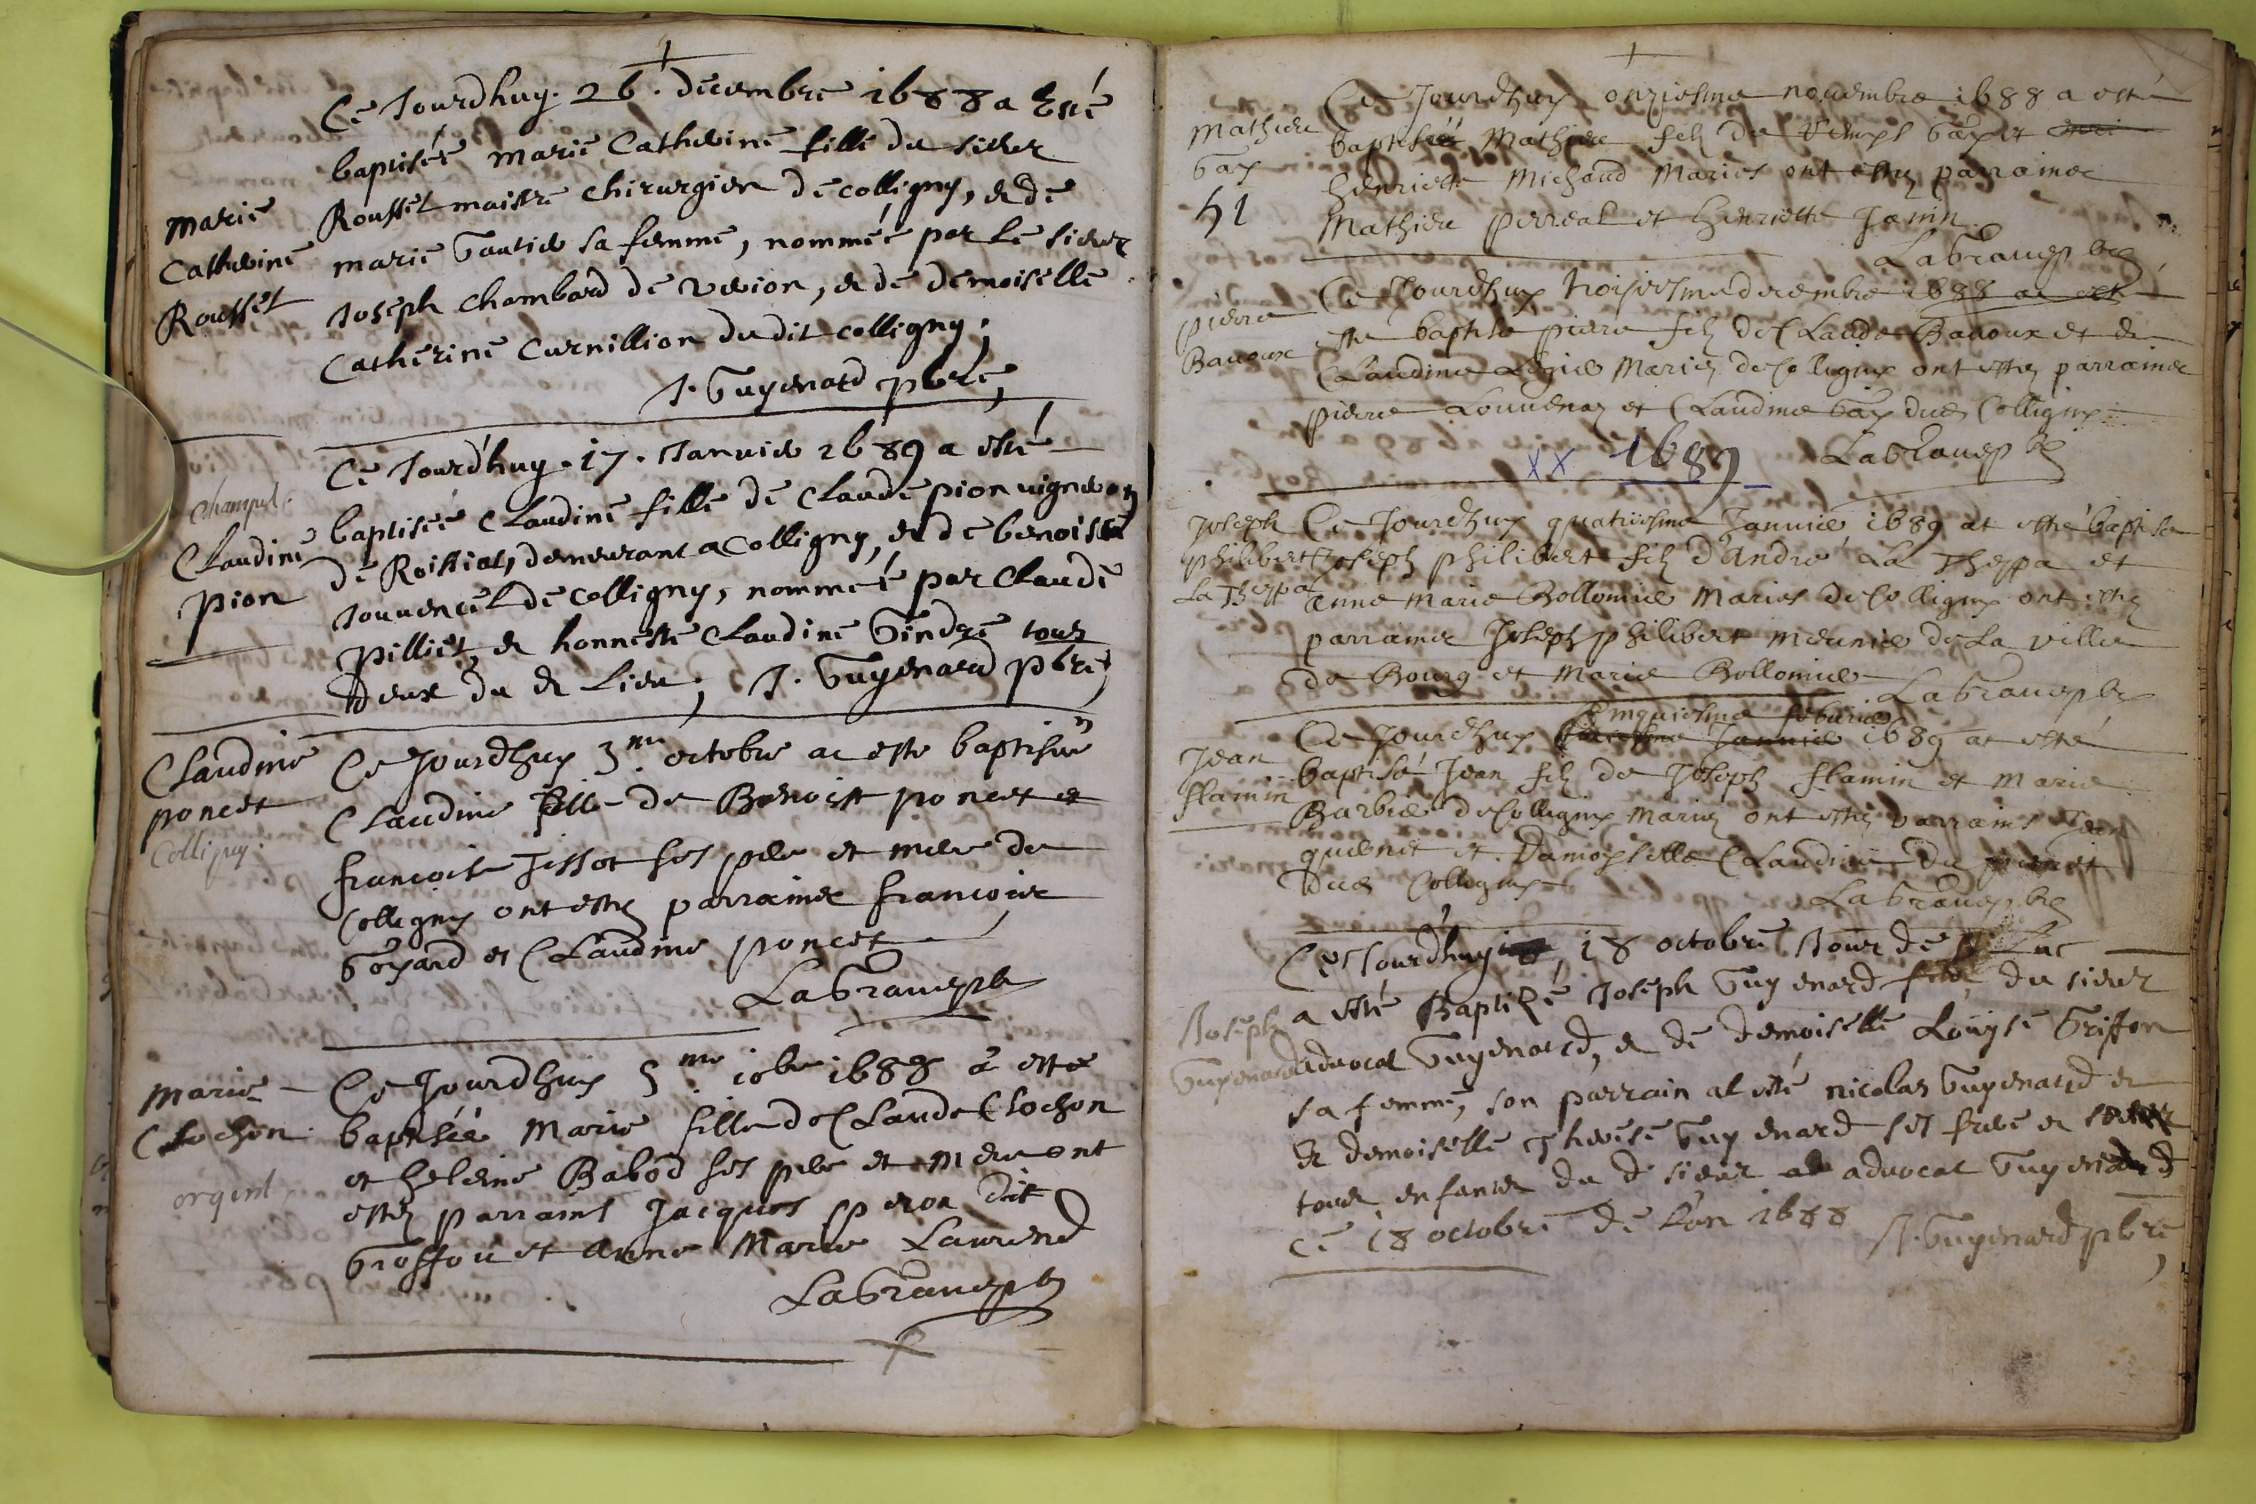 Ce Jourdhuy. 26. decembre 1688 a Esté
baptiseé marie Catherine fille du sieur
Marie
Catherine
Rousset
Rousset maistre chirurgien de colligny, et de
marie Gautier sa femme, nommeé par le sieur
Joseph Chambard de verion, et de demoiselle
Catherine Curnillion du dit colligny;
J. Guyenard pbre,
Ce Jourdhuy. 17. Januier 1689 a esté
champel.
Claudine
pion
baptiseé Claudine fille de Claude pion vigneron
de Roissiat, demeurant a Colligny, et de benoiste
Jouvencel de Colligny, nommeé par Claude
Pilliet, et honneste Claudine Gindre tous
deux du dt Lieu; J. Guyenard pbre,
Claudine
poncet
Colligny.
Ce Jourdhuy 3me octobre at este baptiseé
Claudine fille de Benoist poncet et
francoise Tissot ses pere et mere de
Colligny ont estez parrainer francoise
Goyard et Claudine poncet
LaGrange pbr
Marie
Clochon
orgent
Ce Jourdhuy 5me 10bre 1688 a este
baptiseé Marie fille de Claude Clochon
et heleine Babod ses pere et Mere ont
estez parrains Jacques peron dit
Groffou et Anne Marie Laurend
LaGrange pbr
Mathieu
Gay
51
Ce Jourdhuy onziesme nouembre 1688 a esté
baptisé Mathieu filz de Gay et
henriette Michaud Maries ont estez parrainer
Mathieu perreal et henriette Janin
LaGrange pbr
pierre
Bauoux
Ce Jourdhuy troisiesme decembre 1688 at est
este baptise pierre filz de Claude Bauoux et de
Claudine Mariez de Colligny ont estez parrainer
pierre Louuenaz et Claudine Gay dud Colligny
LaGrange pbr
xx 1689
Joseph
philibert
La Theppa
Ce Jourdhuy quatriesme Januier 1689 at esté baptise
Joseph philibert filz d'André La Theppa et
anne marie Bollomier Maries de Colligny ont estez
parrainer Joseph philibert meunier de La ville
de Bourg et Marie Bollomier LaGrange pbr
Cinquiesme feburier
Jean
flamin
Ce Jourdhuy 1689 at esté
baptisé Jean filz de Joseph flamin et Marie
Barbier de Colligny Mariez ont estez parrains Jean
quienet et Damoyselle Claudine du
dud Colligny
LaGrange pbr
Joseph
Guyenard
Ce Jourdhuy 18 octobre Jour de St Luc
a esté Baptizé Joseph Guyenard filz du sieur
advocat Guyenard, et de demoiselle Louyse Griffon
sa femme, son parrain at esté nicolas Guyenard et
et demoiselle Therese Guyenard ses frere et soeur
tous enfants du d sieur advocat Guyenard
ce 18 octobre de L'an 1688 J. Guyenard pbre,